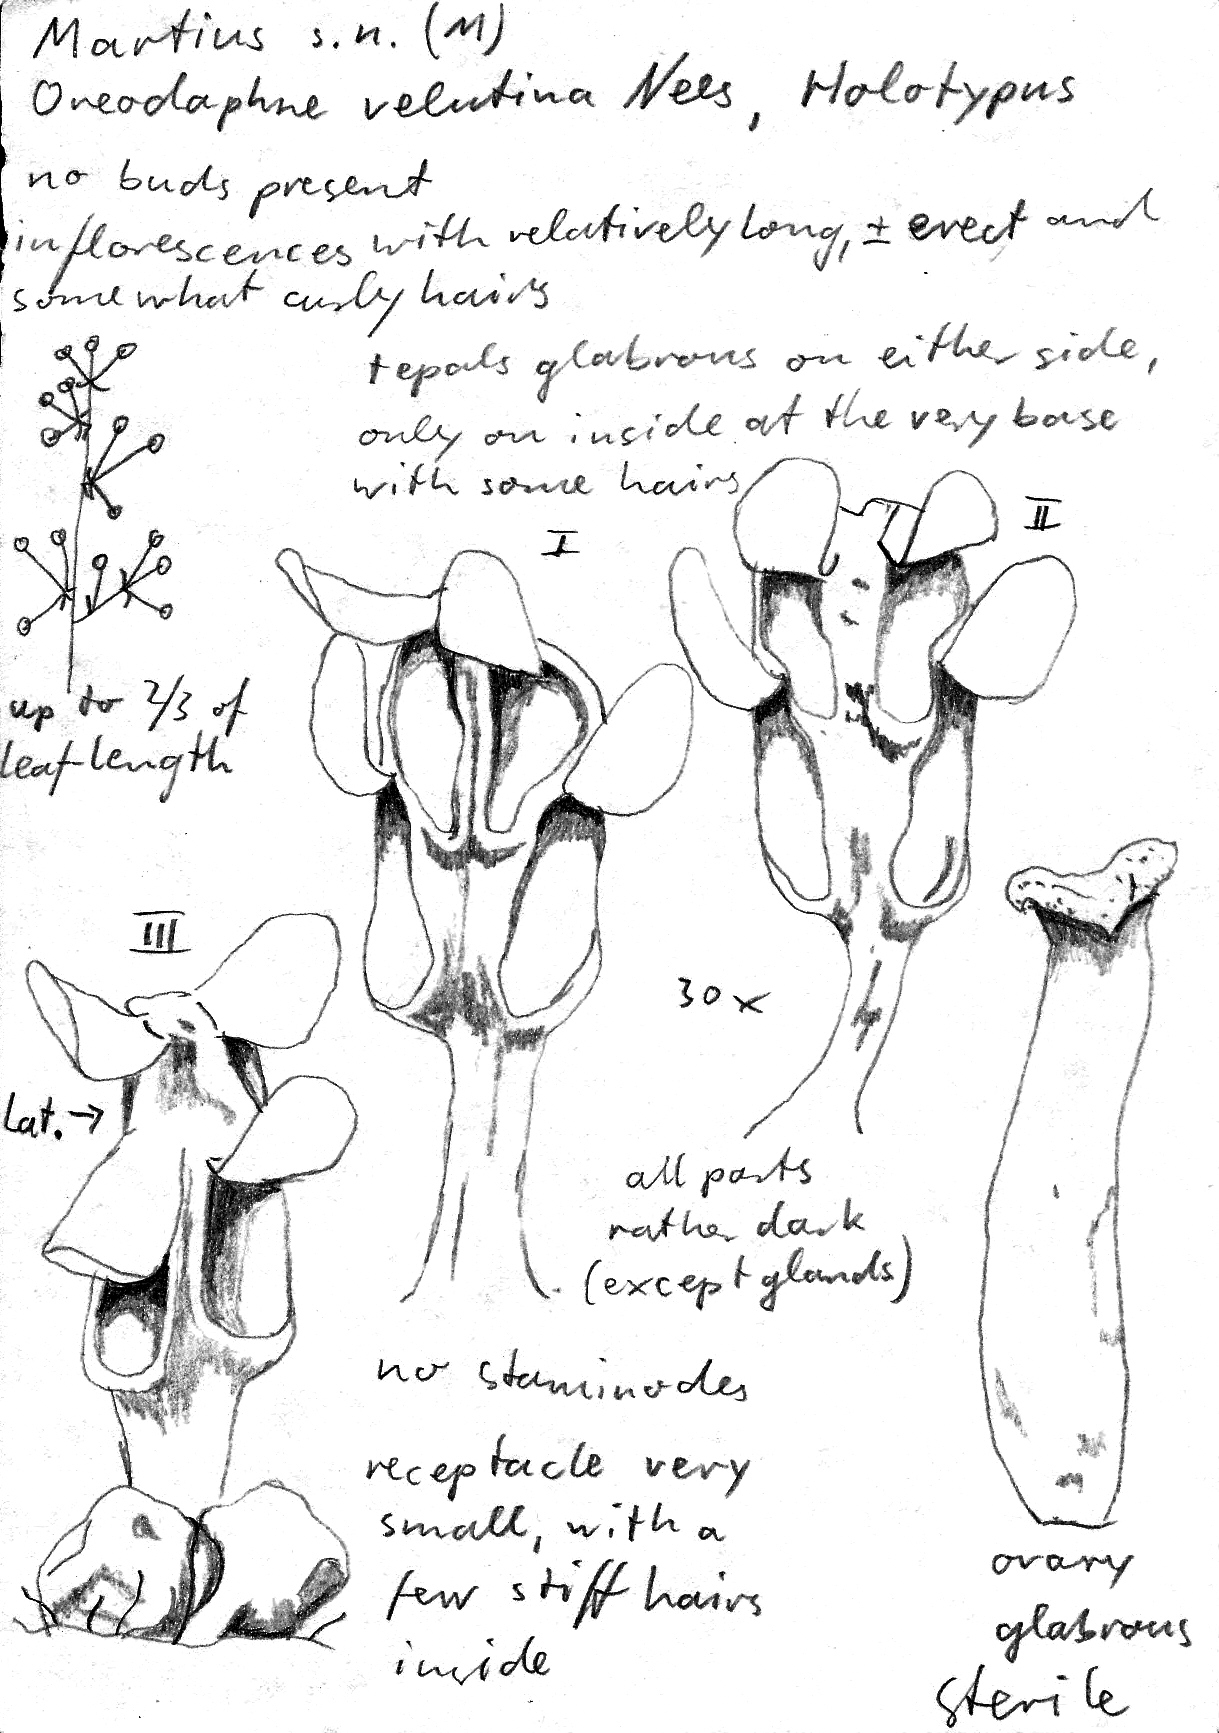 Martius s.n. (M)
Oreodaphne velutina Nees, Holotypus
no buds present
inflorescences with relatively long, ± erect and
somewhat curly hairs
tepals glabrous on either side,
only on inside at the very base
with some hairs
I
II
up to 2/3 of
leaf length
III
30 x
Lat. →
all parts
rather dark
(except glands)
no staminodes
receptacle very
small, with a
few stiff hairs
inside
ovary
glabrous
sterile